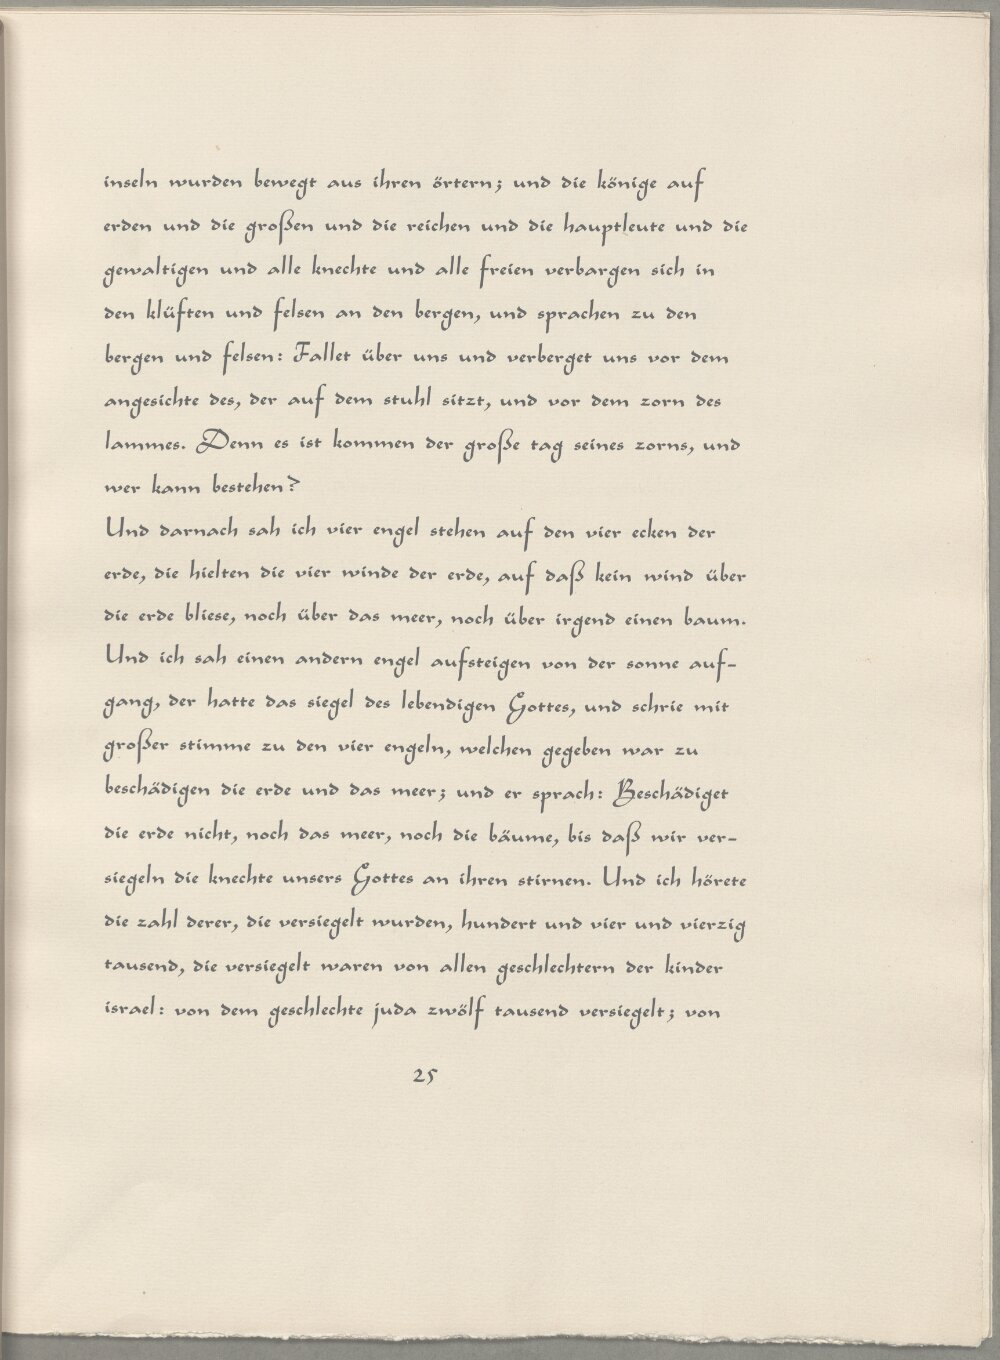 inseln wurden bewegt aus ihren örtern; und die könige auf
erden und die großen und die reichen und die hauptleute und die
gewaltigen und alle knechte und alle freien verbargen sich in
den klüften und felsen an den bergen, und sprachen zu den
bergen und felsen: Fallet über uns und verberget uns vor dem
angesichte des, der auf dem stuhl sitzt, und vor dem zorn des
lammes. Denn es ist kommen der große tag seines zorns, und
wer kann bestehen?
Und darnach sah ich vier engel stehen auf den vier ecken der
erde, die hielten die vier winde der erde, auf daß kein wind über
die erde bliese, noch über das meer, noch über irgend einen baum.
Und ich sah einen andern engel aufsteigen von der sonne auf-
gang, der hatte das siegel des lebendigen Gottes, und schrie mit
großer stimme zu den vier engeln, welchen gegeben war zu
beschädigen die erde und das meer; und er sprach: Beschädiget
die erde nicht, noch das meer, noch die bäume, bis daß wir ver-
siegeln die knechte unsers Gottes an ihren stirnen. Und ich hörete
die zahl derer, die versiegelt wurden, hundert und vier und vierzig
tausend, die versiegelt waren von allen geschlechtern der kinder
israel: von dem geschlechte juda zwölf tausend versiegelt; von
25